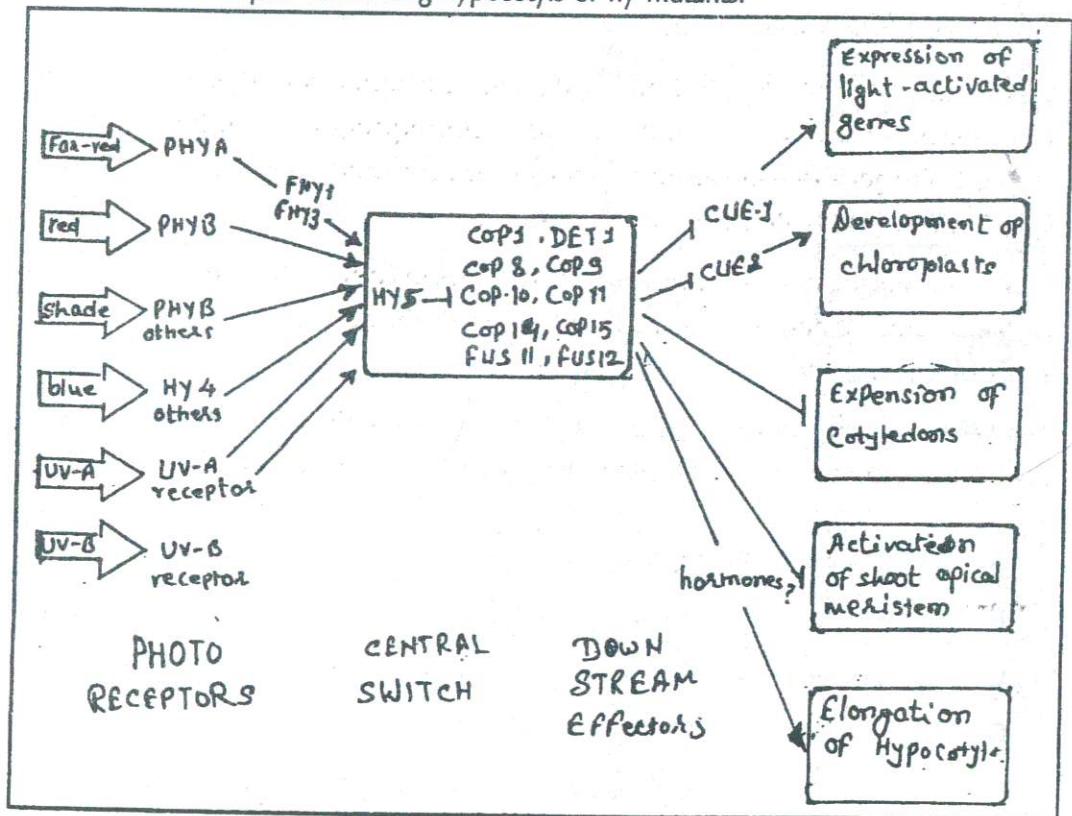 Far-red PHYA
FHY1
FHY3
red PHYB
shade PHYB
others
blue HY4
others
UV-A UV-A
receptor
UV-B UV-B
receptor
COP1, DET1
COP8, COP9
HY5 COP-10, COP11
COP14, COP15
FUS11, FUS12
CUE-1
CUE2
hormones?
Expression of
light-activated
genes
Development of
chloroplasts
Expension of
Cotyledons
Activation
of shoot apical
meristem
Elongation
of Hypocotyl.
PHOTO
RECEPTORS
CENTRAL
SWITCH
DOWN
STREAM
Effectors